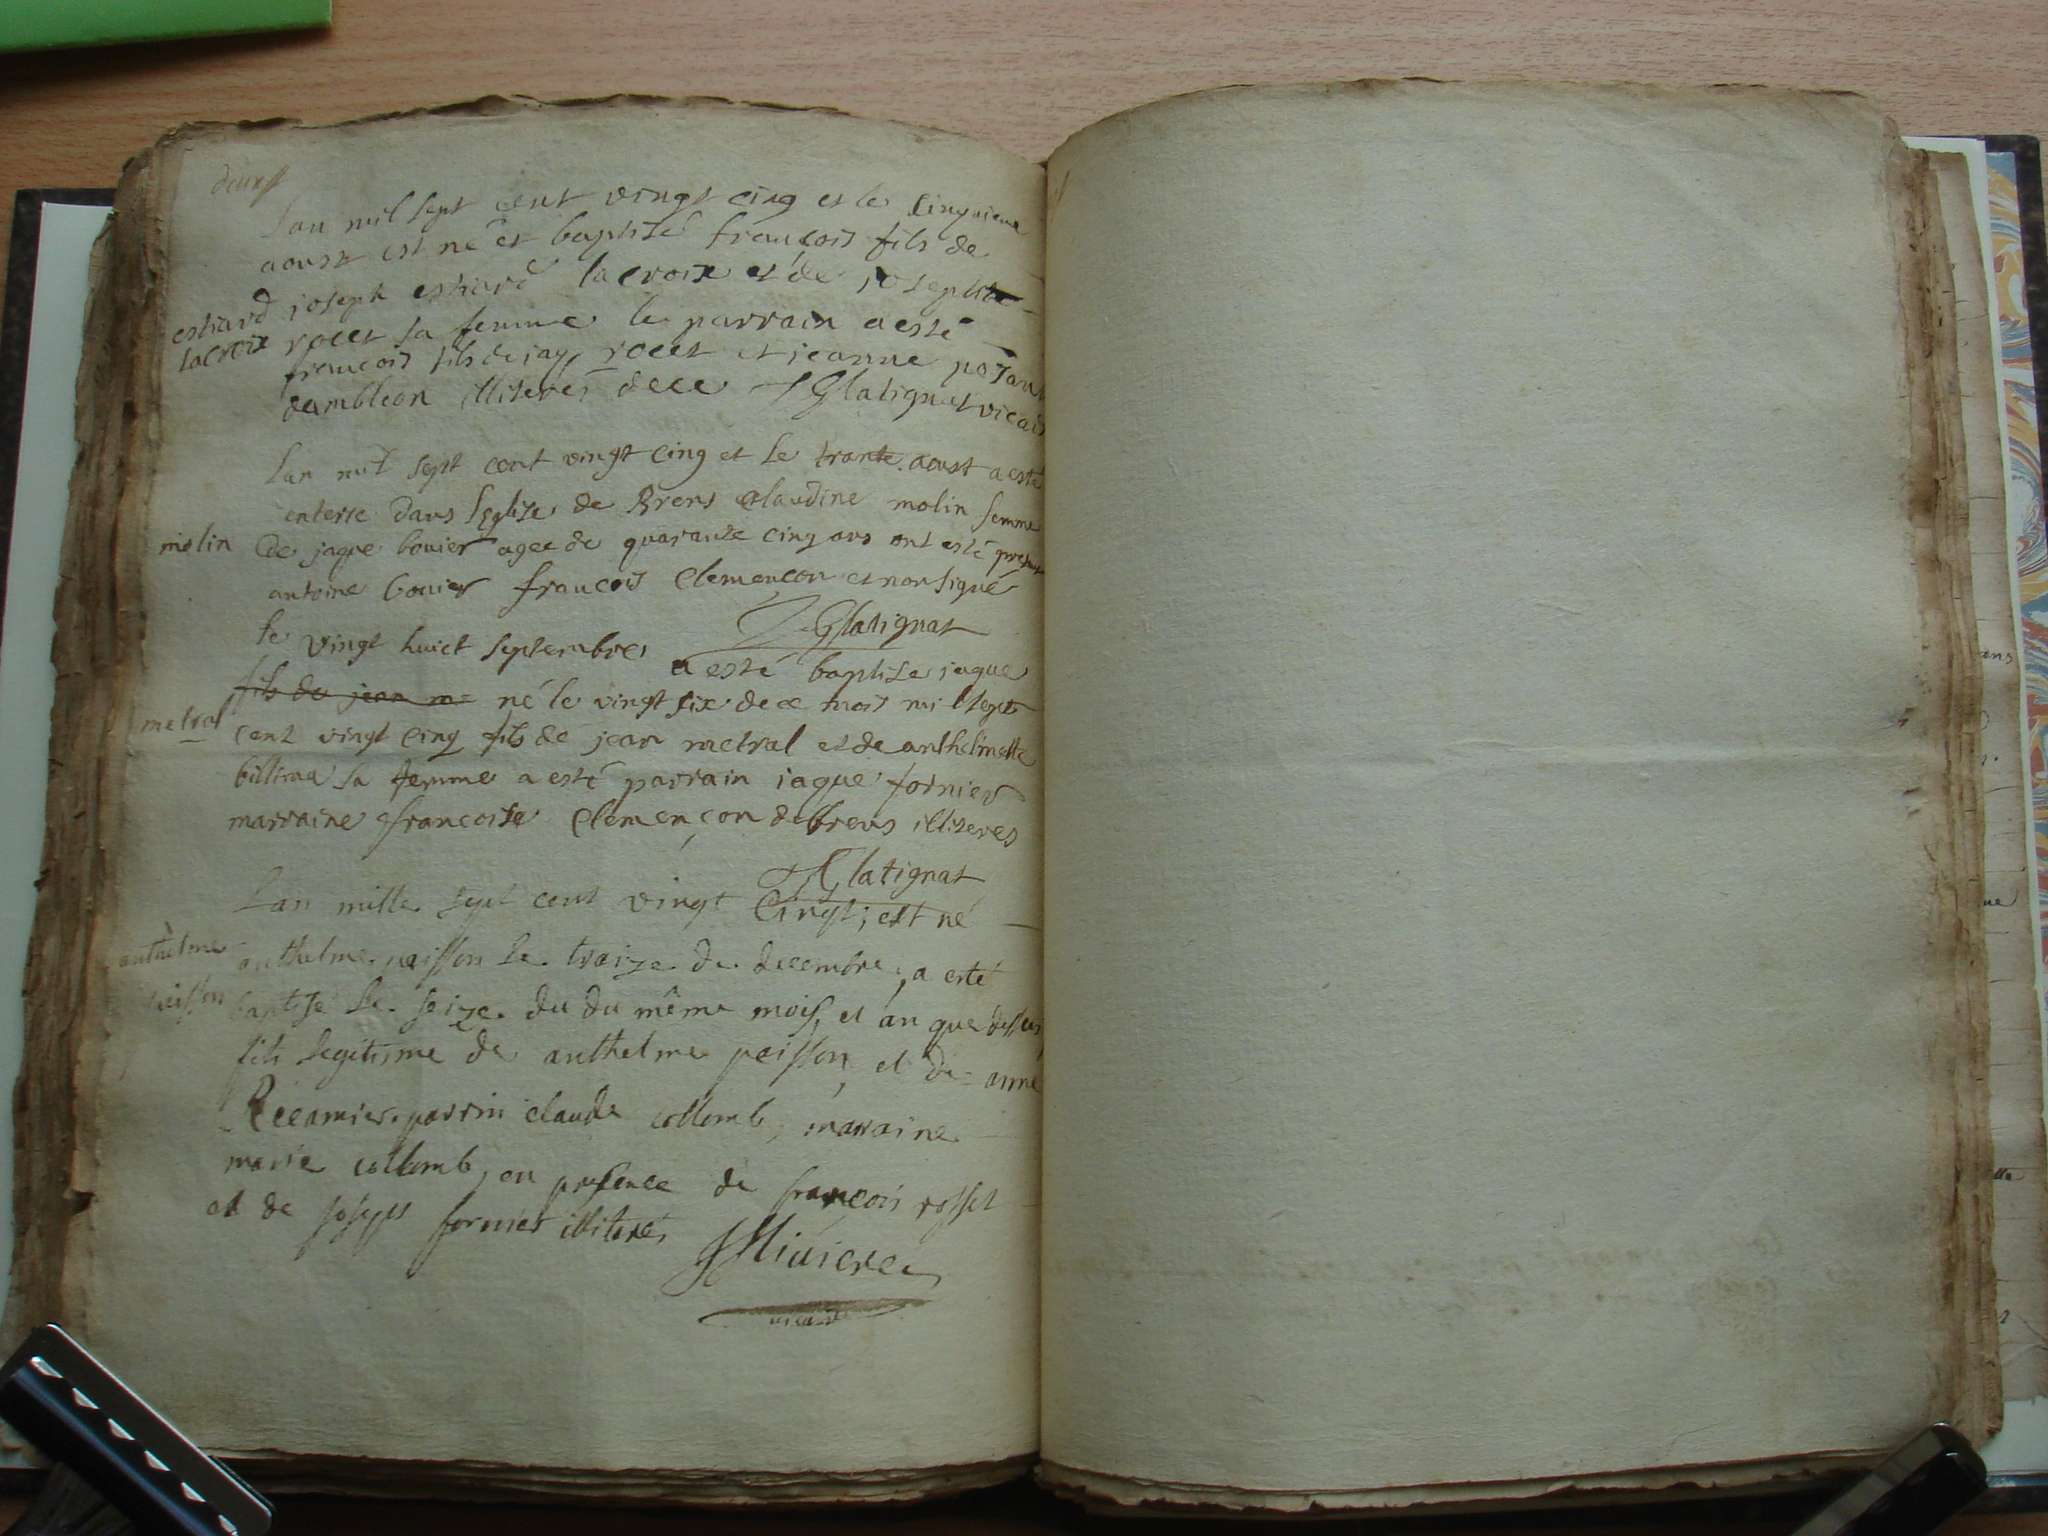 Lan mil sept cent vingt cinq et le cinquieme
aoust est né et baptisé françois fils de
estiard joseph estiard lacroix et de josephte
lacroix rocet sa femme le parrain a esté
francois fils de jaq rocet et jeanne
dambléon illiterés de ce Glatignat vicair
Lan mil sept cent vingt cinq et le trante aoust a esté
enterré dans leglize de Brens claudine molin femme
molin de jaque bouier agee de quarante cinq ans ont esté present
antoine bouier francois clemençon et non signé
Glatignat
le vingt huict septembre a esté baptise jaque
fils de jean me né le vingt six de ce mois mil sept
metral cent vingt cinq fils de jean metral et de anthelmette
sa femme a esté parrain jaque fornier
marraine francoise clemençon de brens illiteres
Glatignat
Lan mille sept cent vingt cingt; est né
anthelme anthelme peisson le traize de decembre, a esté
peisson baptisé le seize du du même mois, et an que dessus,
fils legitisme de anthelme peisson, et de anne
Récamier. parrin claude collomb, marraine
marie collomb, en presence de françois rosset
et de josept fornier illiterés
Riviere
vicaire